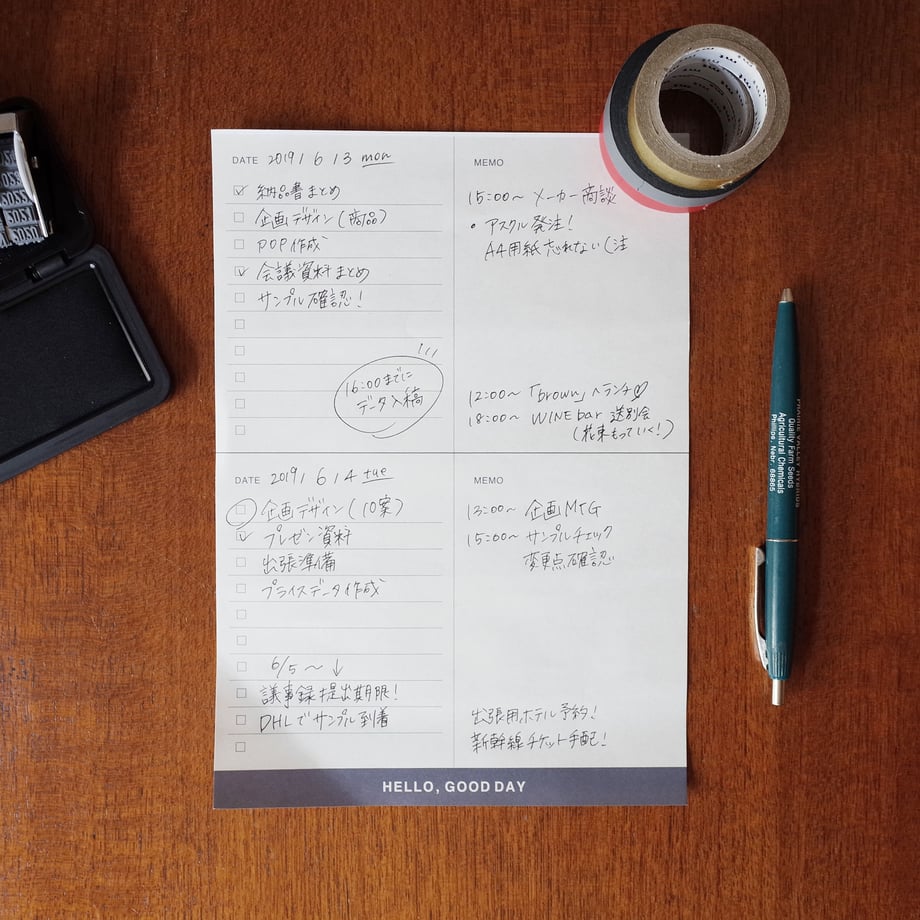 DATE 2019 / 6 / 3 mon
納品書まとめ
企画デザイン(商品)
POP作成
会議資料まとめ
サンプル確認!
16:00までに
データ入稿
MEMO
15:00〜 メーカー商談
• アスクル発注!
A4用紙忘れない
12:00〜 「brown」へランチ♡
18:00〜 WINE bar 送別会
(花束もっていく!)
DATE 2019 / 6 / 4 tue
企画デザイン(10案)
プレゼン資料
出張準備
プライスデータ作成
6/5 〜 ↓
議事録提出期限!
DHLでサンプル到着
MEMO
13:00〜 企画MTG
15:00〜 サンプルチェック
変更点確認
出張用ホテル予約!
新幹線チケット手配!
HELLO, GOOD DAY
mt
Quality Farm Seeds
Agricultural Chemicals
Phillips, Nebr. 68865